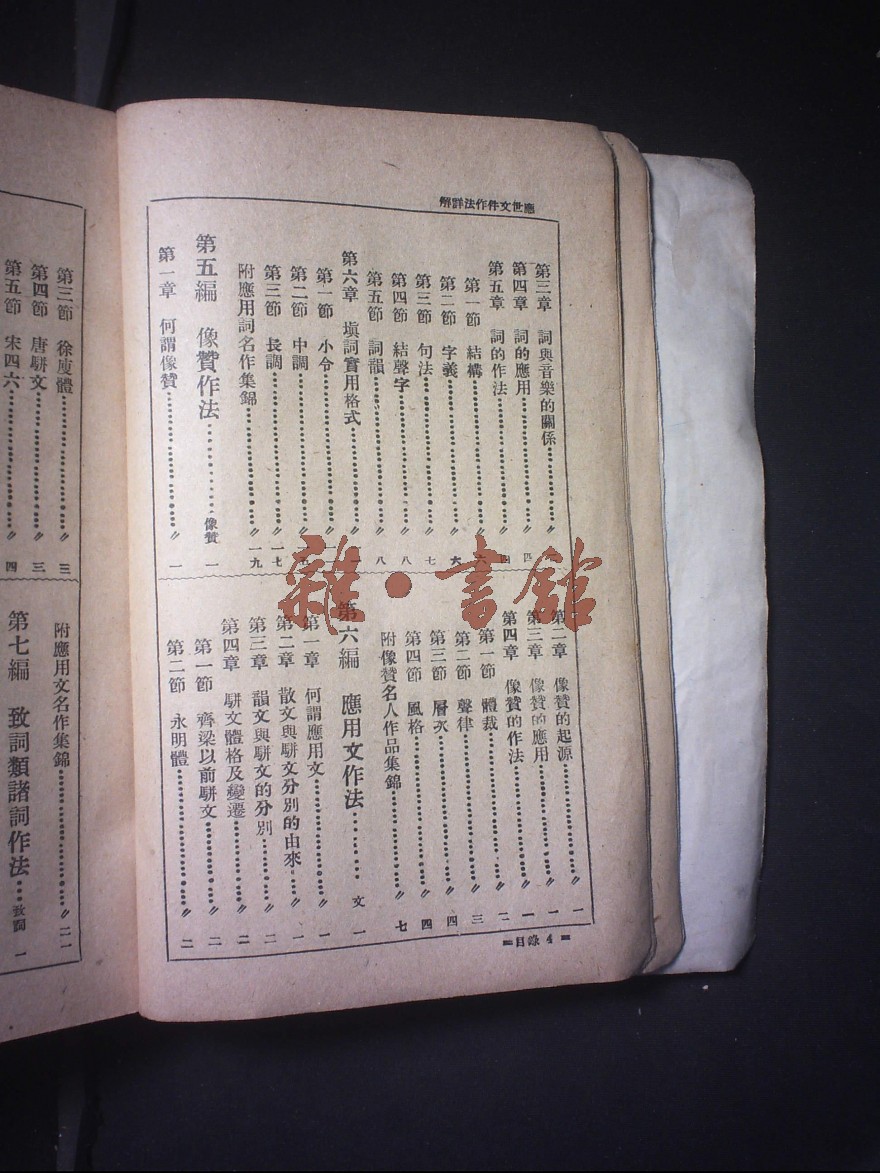 應世文件作法詳解
第三章 詞與音樂的關係……〃
第四章 詞的應用……〃 四
第五章 詞的作法……〃 四
第一節 結構……〃 六
第二節 字義……〃 六
第三節 句法……〃 七
第四節 結聲字……〃 八
第五節 詞韻……〃 八
第六章 塡詞實用格式……〃
第一節 小令……〃
第二節 中調……〃
第三節 長調……〃 一七
附應用詞名作集錦……〃 一九
第五編 像贊作法……像贊 一
第一章 何謂像贊……〃 一
第二章 像贊的起源……〃 一
第三章 像贊的應用……〃 一
第四章 像贊的作法……〃 二
第一節 體裁……〃
第二節 聲律……〃 三
第三節 層次……〃 四
第四節 風格……〃 四
附像贊名人作品集錦……〃 七
第六編 應用文作法……文 一
第一章 何謂應用文……〃 一
第二章 散文與駢文分別的由來……〃 一
第三章 韻文與駢文的分別……〃 二
第四章 駢文體格及變遷……〃 二
第一節 齊梁以前駢文……〃 二
第二節 永明體……〃 二
=目錄 4=
第三節 徐庾體……〃 三
第四節 唐駢文……〃 三
第五節 宋四六……〃 四
附應用文名作集錦……〃 二一
第七編 致詞類諸詞作法……致詞 一
雜·書館